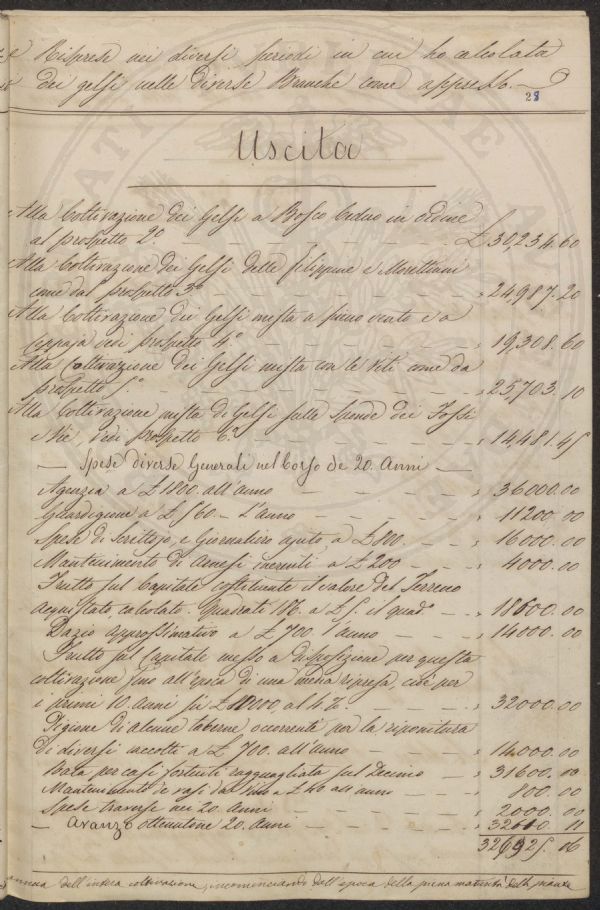 Risprese nei diversi periodi in cui ho calcolata
dei gelsi nelle diverse Branche come appresso.
28
Uscita
Alla Coltivazione dei Gelsi a Bosco Ceduo in ordine
al prospetto 2º. £ 30,234.60
Alla Coltivazione dei Gelsi delle filippine e Morettiani
come dal prospetto 3º " 24,987.20
Alla Coltivazione dei Gelsi mista a pieno vento e a
ceppaja vedi prospetto 4º " 19,308.60
Alla Coltivazione dei Gelsi mista con le Viti come da
prospetto 5º " 25,703.10
Alla Coltivazione mista di Gelsi sulle Sponde dei Fossi
e Vie, vedi prospetto 6º " 14,481.45
— Spese diverse Generali nel Corso de 20. Anni —
Agenzia a £ 1800. all'anno " 36000.00
Guardigione a £ 560 - l'anno " 11200.00
Spese di Scrittojo, e Giornaliero ajuto a £ 800. " 16000.00
Mantenimento di Arnesi inerenti a £ 200 " 4000.00
Frutto sul Capitale costituente il valore del Terreno
acquistato, calcolato. Quadrati 186. a £ 5. il quadº " 18600.00
Dazio approssimativo a £ 700. l'anno " 14000.00
Frutto sul Capitale messo a disposizione per questa
coltivazione fino all'epoca di una media ripresa, cioè per
i primi 10. Anni di £ 80000, al 4 %. " 32000.00
Pigione di alcune taberne occorrenti per la riponitura
di diversi raccolti a £ 700. all'anno " 14000.00
per casi fortuiti ragguagliata sul Decimo " 31600.00
Mantenimento di vasi dal vino a £ 40 all'anno " 800.00
Spese traverse nei 20. anni " 2000.00
— Avanzo ottenuto ne 20. Anni " 11
16
annua dell'intera coltivazione, incominciando dall'epoca della piena maturità delle piante